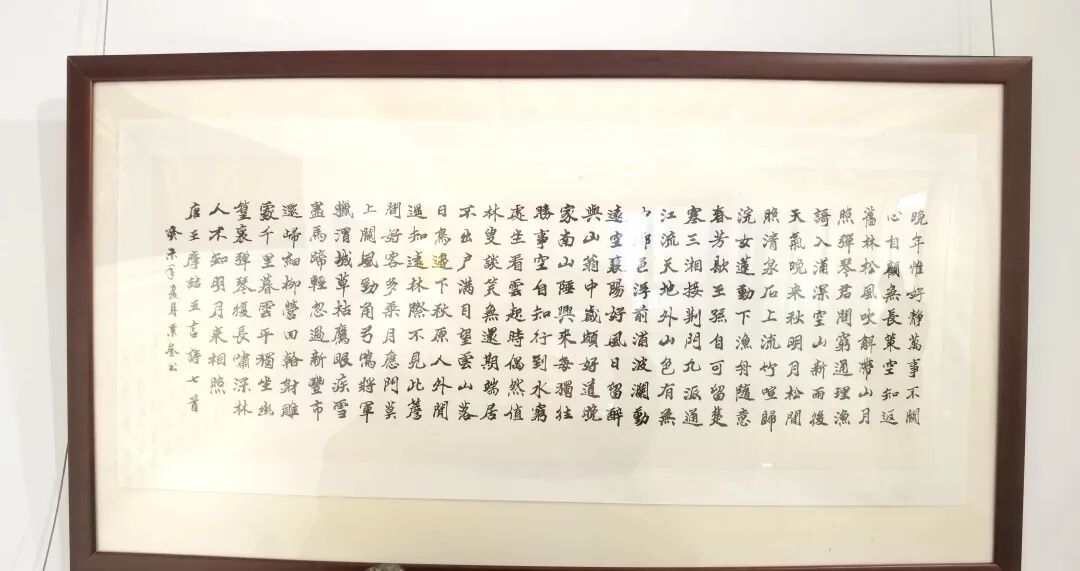 晚年惟好靜萬事不關
心自顧無長策空知返
舊林松風吹解帶山月
照彈琴君問窮通理漁
謌入浦深空山新雨後
天氣晚來秋明月松間
照清泉石上流竹喧歸
浣女蓮動下漁舟隨意
春芳歇王孫自可留楚
塞三湘接荆門九派通
江流天地外山色有無
中郡邑浮前浦波瀾動
遠空襄陽好風日留醉
與山翁中歲頗好道晚
家南山陲興來每獨往
勝事空自知行到水窮
處坐看雲起時偶然值
林叟談笑無還期端居
不出户滿目望雲山落
日鳥邊下秋原人外閒
遥知遠林際不見此簷
間好客多乘月應門莫
上關風勁角弓鳴將軍
獵渭城草枯鷹眼疾雪
盡馬蹄輕忽過新豐市
還歸細柳營回看射雕
處千里暮雲平獨坐幽
篁裏彈琴復長嘯深林
人不知明月來相照
唐王摩詰五言詩七首
癸未年夏月